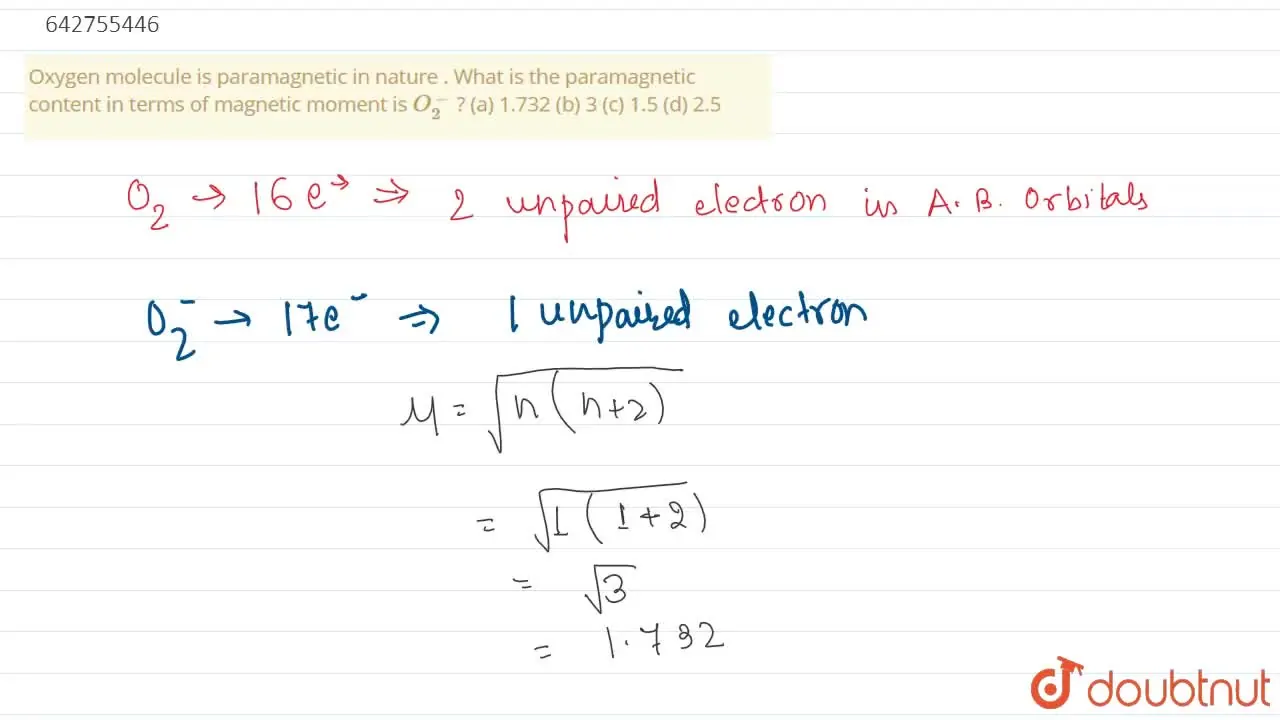 642755446
Oxygen molecule is paramagnetic in nature . What is the paramagnetic
content in terms of magnetic moment is O₂⁻ ? (a) 1.732 (b) 3 (c) 1.5 (d) 2.5
O₂ → 16e→ ⇒ 2 unpaired electron in A.B. Orbitals
O₂⁻ → 17e⁻ ⇒ 1 unpaired electron
μ = √n(n+2)
= √1(1+2)
= √3
= 1.732
doubtnut